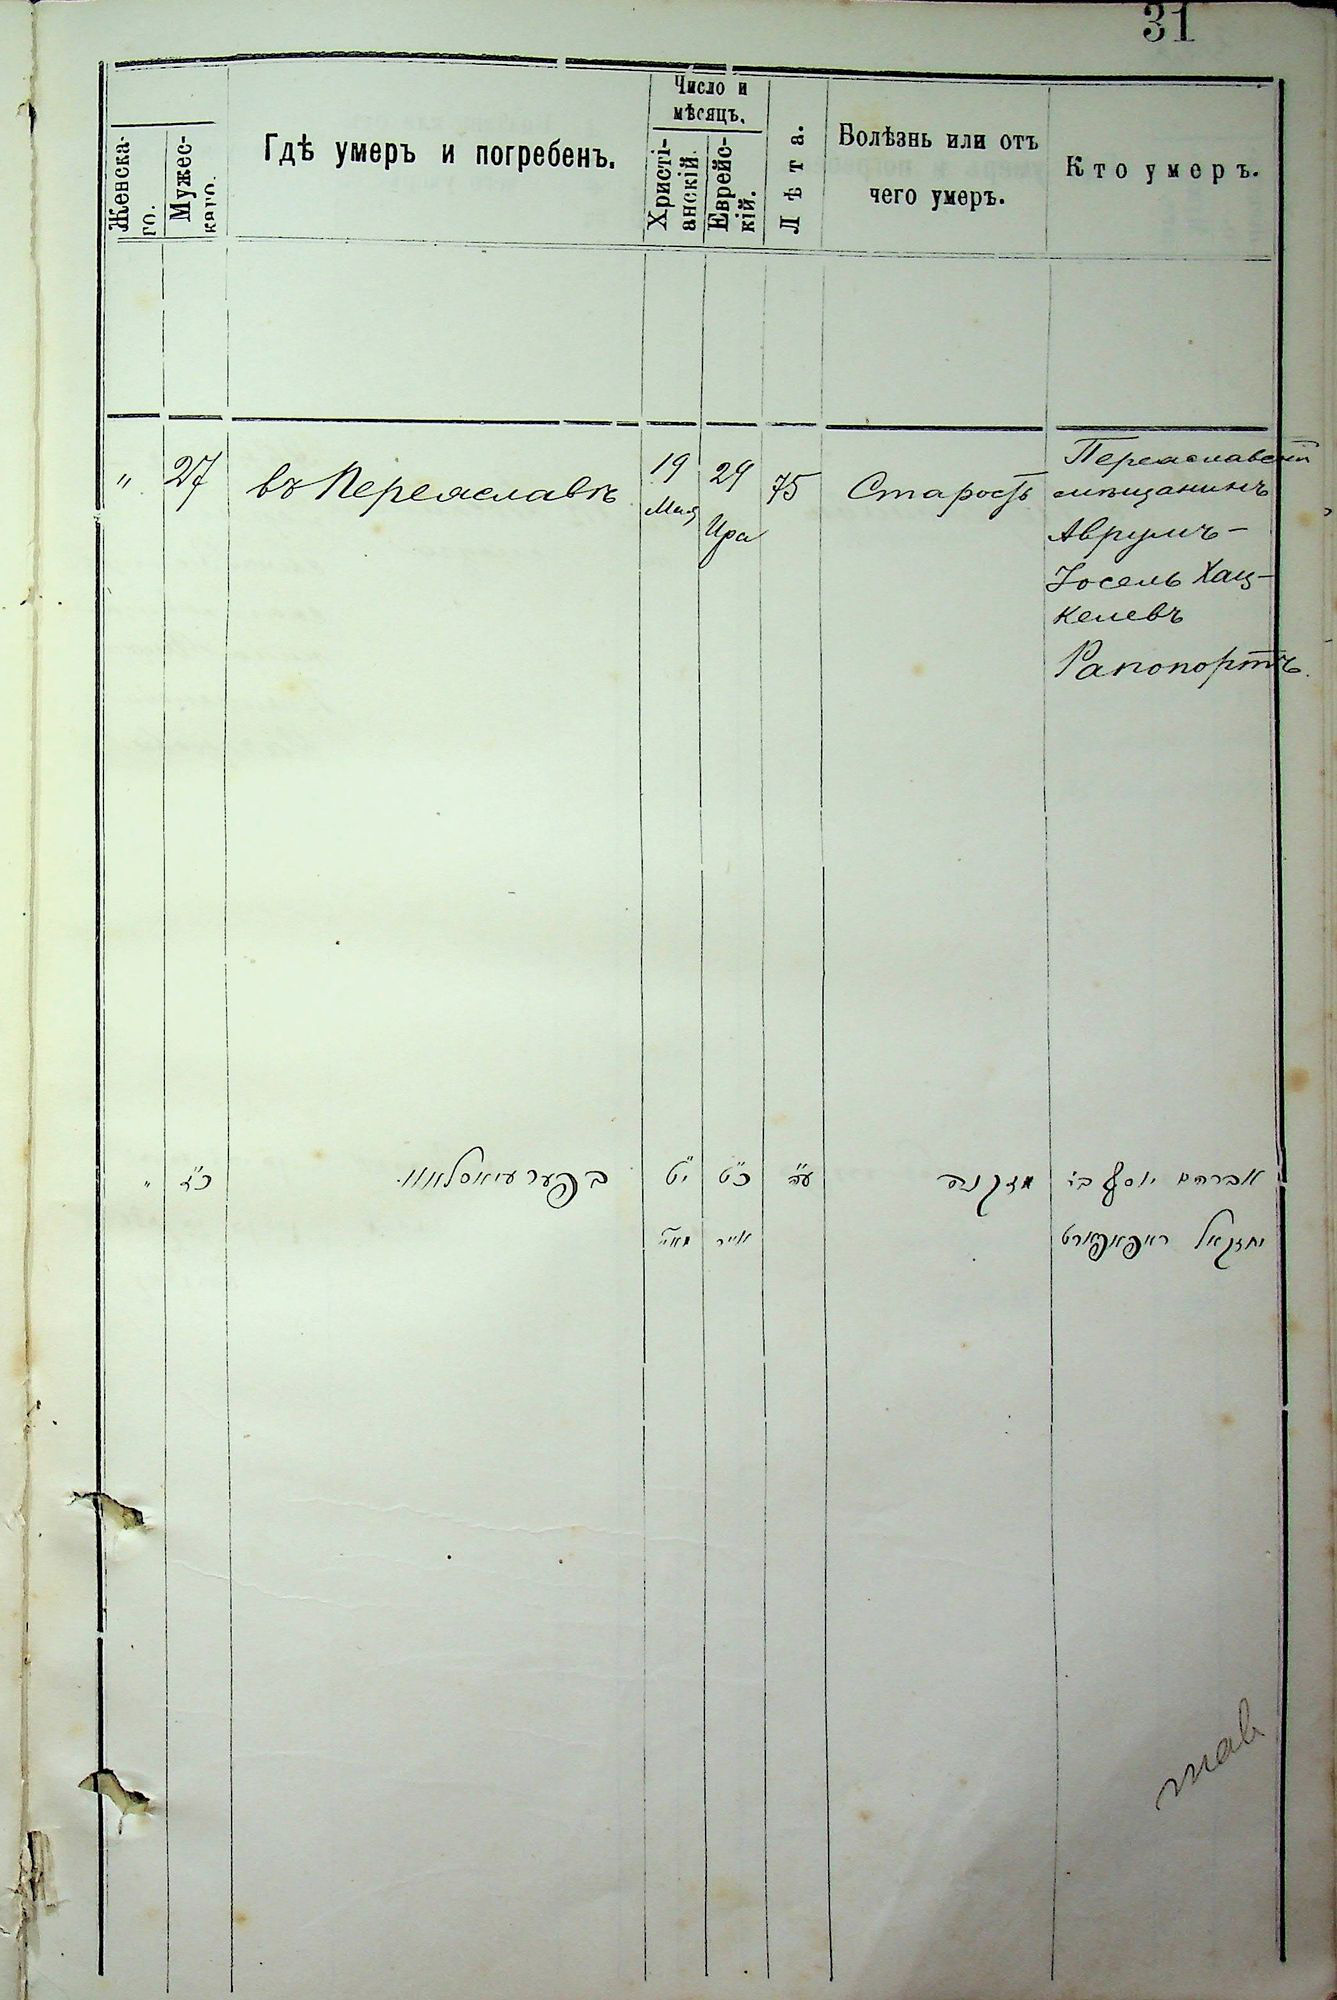 31
Женска-
го.
Мужес-
каго.
Гдѣ умеръ и погребенъ.
Число и
мѣсяцъ.
Христі-
анскій.
Еврейс-
кій.
Лѣта.
Болѣзнь или отъ
чего умеръ.
Кто умеръ.
" 27 въ Переяславѣ 19 29 75 Старость Переяславскій
Мая Ира мѣщанинъ
Аврумъ-
Іосель Хац-
келевъ
Рапопортъ.
" כ"ז בפערעיאסלאוו י"ט כ"ט ע"ה מזקנה אברהם יוסף בר
מאיי אייר יחזקאל ראפאפארט